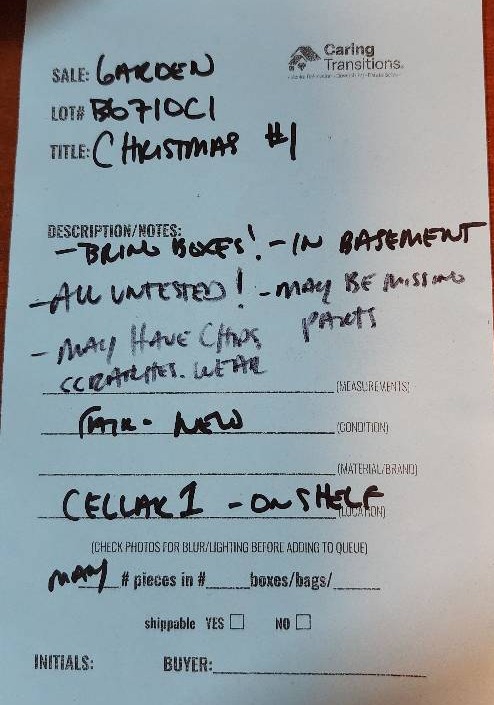 Caring
Transitions®
SALE: GARDEN
LOT# B6710C1
TITLE: CHRISTMAS #1
DESCRIPTION/NOTES:
- BRING BOXES! - IN BASEMENT
- ALL UNTESTED! - MAY BE MISSING
PARTS
- MAY HAVE CHIPS
SCRATCHES. WEAR
(MEASUREMENTS)
FAIR - NEW (CONDITION)
(MATERIAL/BRAND)
CELLAR 1 - ON SHELF (LOCATION)
(CHECK PHOTOS FOR BLUR/LIGHTING BEFORE ADDING TO QUEUE)
MANY # pieces in #____ boxes/bags/____
shippable YES ☐ NO ☐
INITIALS: BUYER: